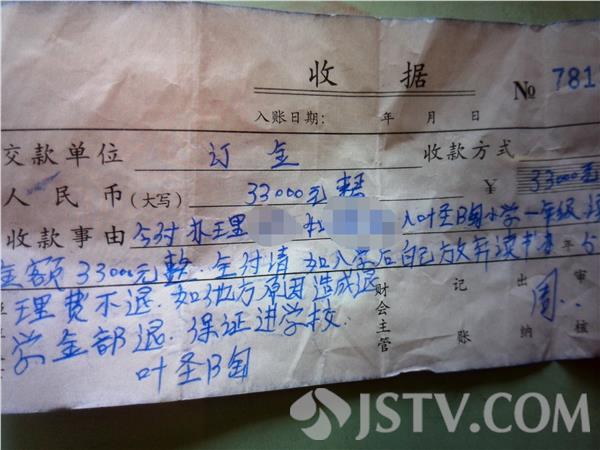 收据
№ 781
入账日期: 年 月 日
交款单位 订金 收款方式
人民币(大写) 33000元整 ¥ 33000元
收款事由 今付办理 入叶圣陶小学一年级
金额33000元整.全付清 如入学后自己放弃读书办
理费不退.如他方原因造成退
学全部退.保证进学校.
叶圣陶
财会主管 记账 出纳 审核
周
JSTV.COM